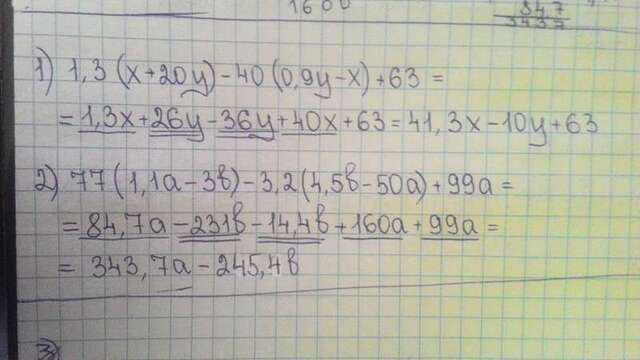 1600
347
3437
1) 1,3 (x+20y)-40(0,9y-x)+63=
=1,3x+26y-36y+40x+63=41,3x-10y+63
2) 77(1,1a-3b)-3,2(4,5b-50a)+99a=
=84,7a-231b-14,4b+160a+99a=
=343,7a-245,4b
3)